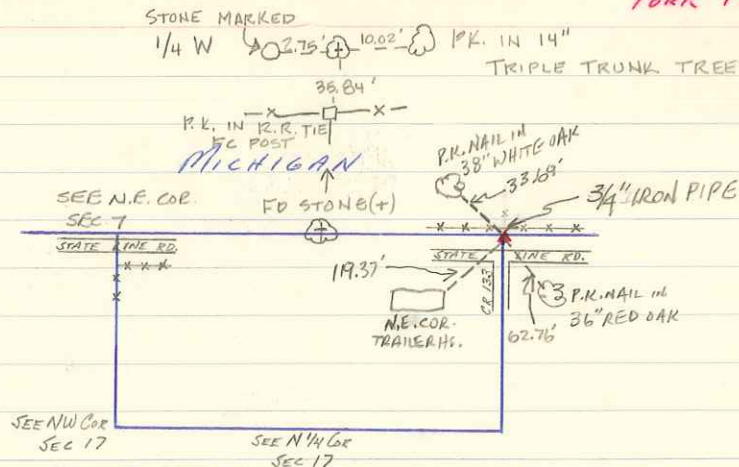 STONE MARKED
1/4 W 2.75' 10.02' P.K. IN 14"
TRIPLE TRUNK TREE
35.84'
P.K. IN R.R. TIE
FC POST
MICHIGAN
P.K. NAIL IN
38" WHITE OAK
33.69'
3/4" IRON PIPE
SEE N.E. COR.
SEC 7
FD STONE(+)
STATE LINE RD.
STATE LINE RD.
119.37'
CR 133
N.E. COR.
TRAILER HS.
P.K. NAIL IN
36" RED OAK
62.76'
SEE NW COR
SEC 17
SEE N 1/4 COR
SEC 17